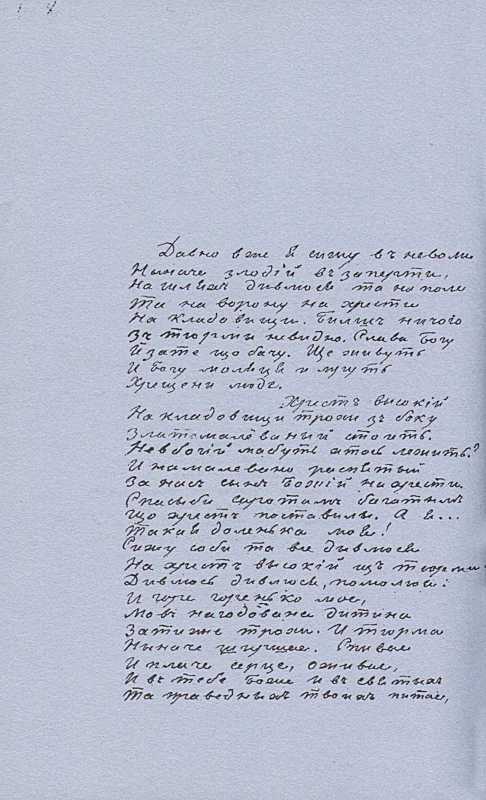 Давно вже я сижу въ неволи
Ниначе злодій въ заперти,
На шляхъ дивлюся та на поле
Та на ворону на хрести
На кладовищи. Билшъ ничого
Зъ тюрми невидно. Слава Богу
Й за те що бачу. Ще живуть
И Богу молятця и мруть
Хрещени люде.
Хрестъ высокій
На кладовищи трохи зъ боку
Златомалёваний стоить.
Невбогій мабуть хтось лежить?
И намалёвано распятый
За насъ сынъ Божій на хрести.
Спасыби сиротамъ багатымъ
Що хрестъ поставилы. А я...
Такая доленька моя!
Сижу соби та все дивлюся
На хрестъ высокій изъ тюрми.
Дивлюсь дивлюся, помолюся:
И горе горенько мое,
Мовъ нагодована дитина
Затихне трохи. И тюрма
Ниначе ширшае. Спивае
И плаче серце, оживае,
И въ тебе Боже и въ святыхъ
Та праведныхъ твоихъ питае,